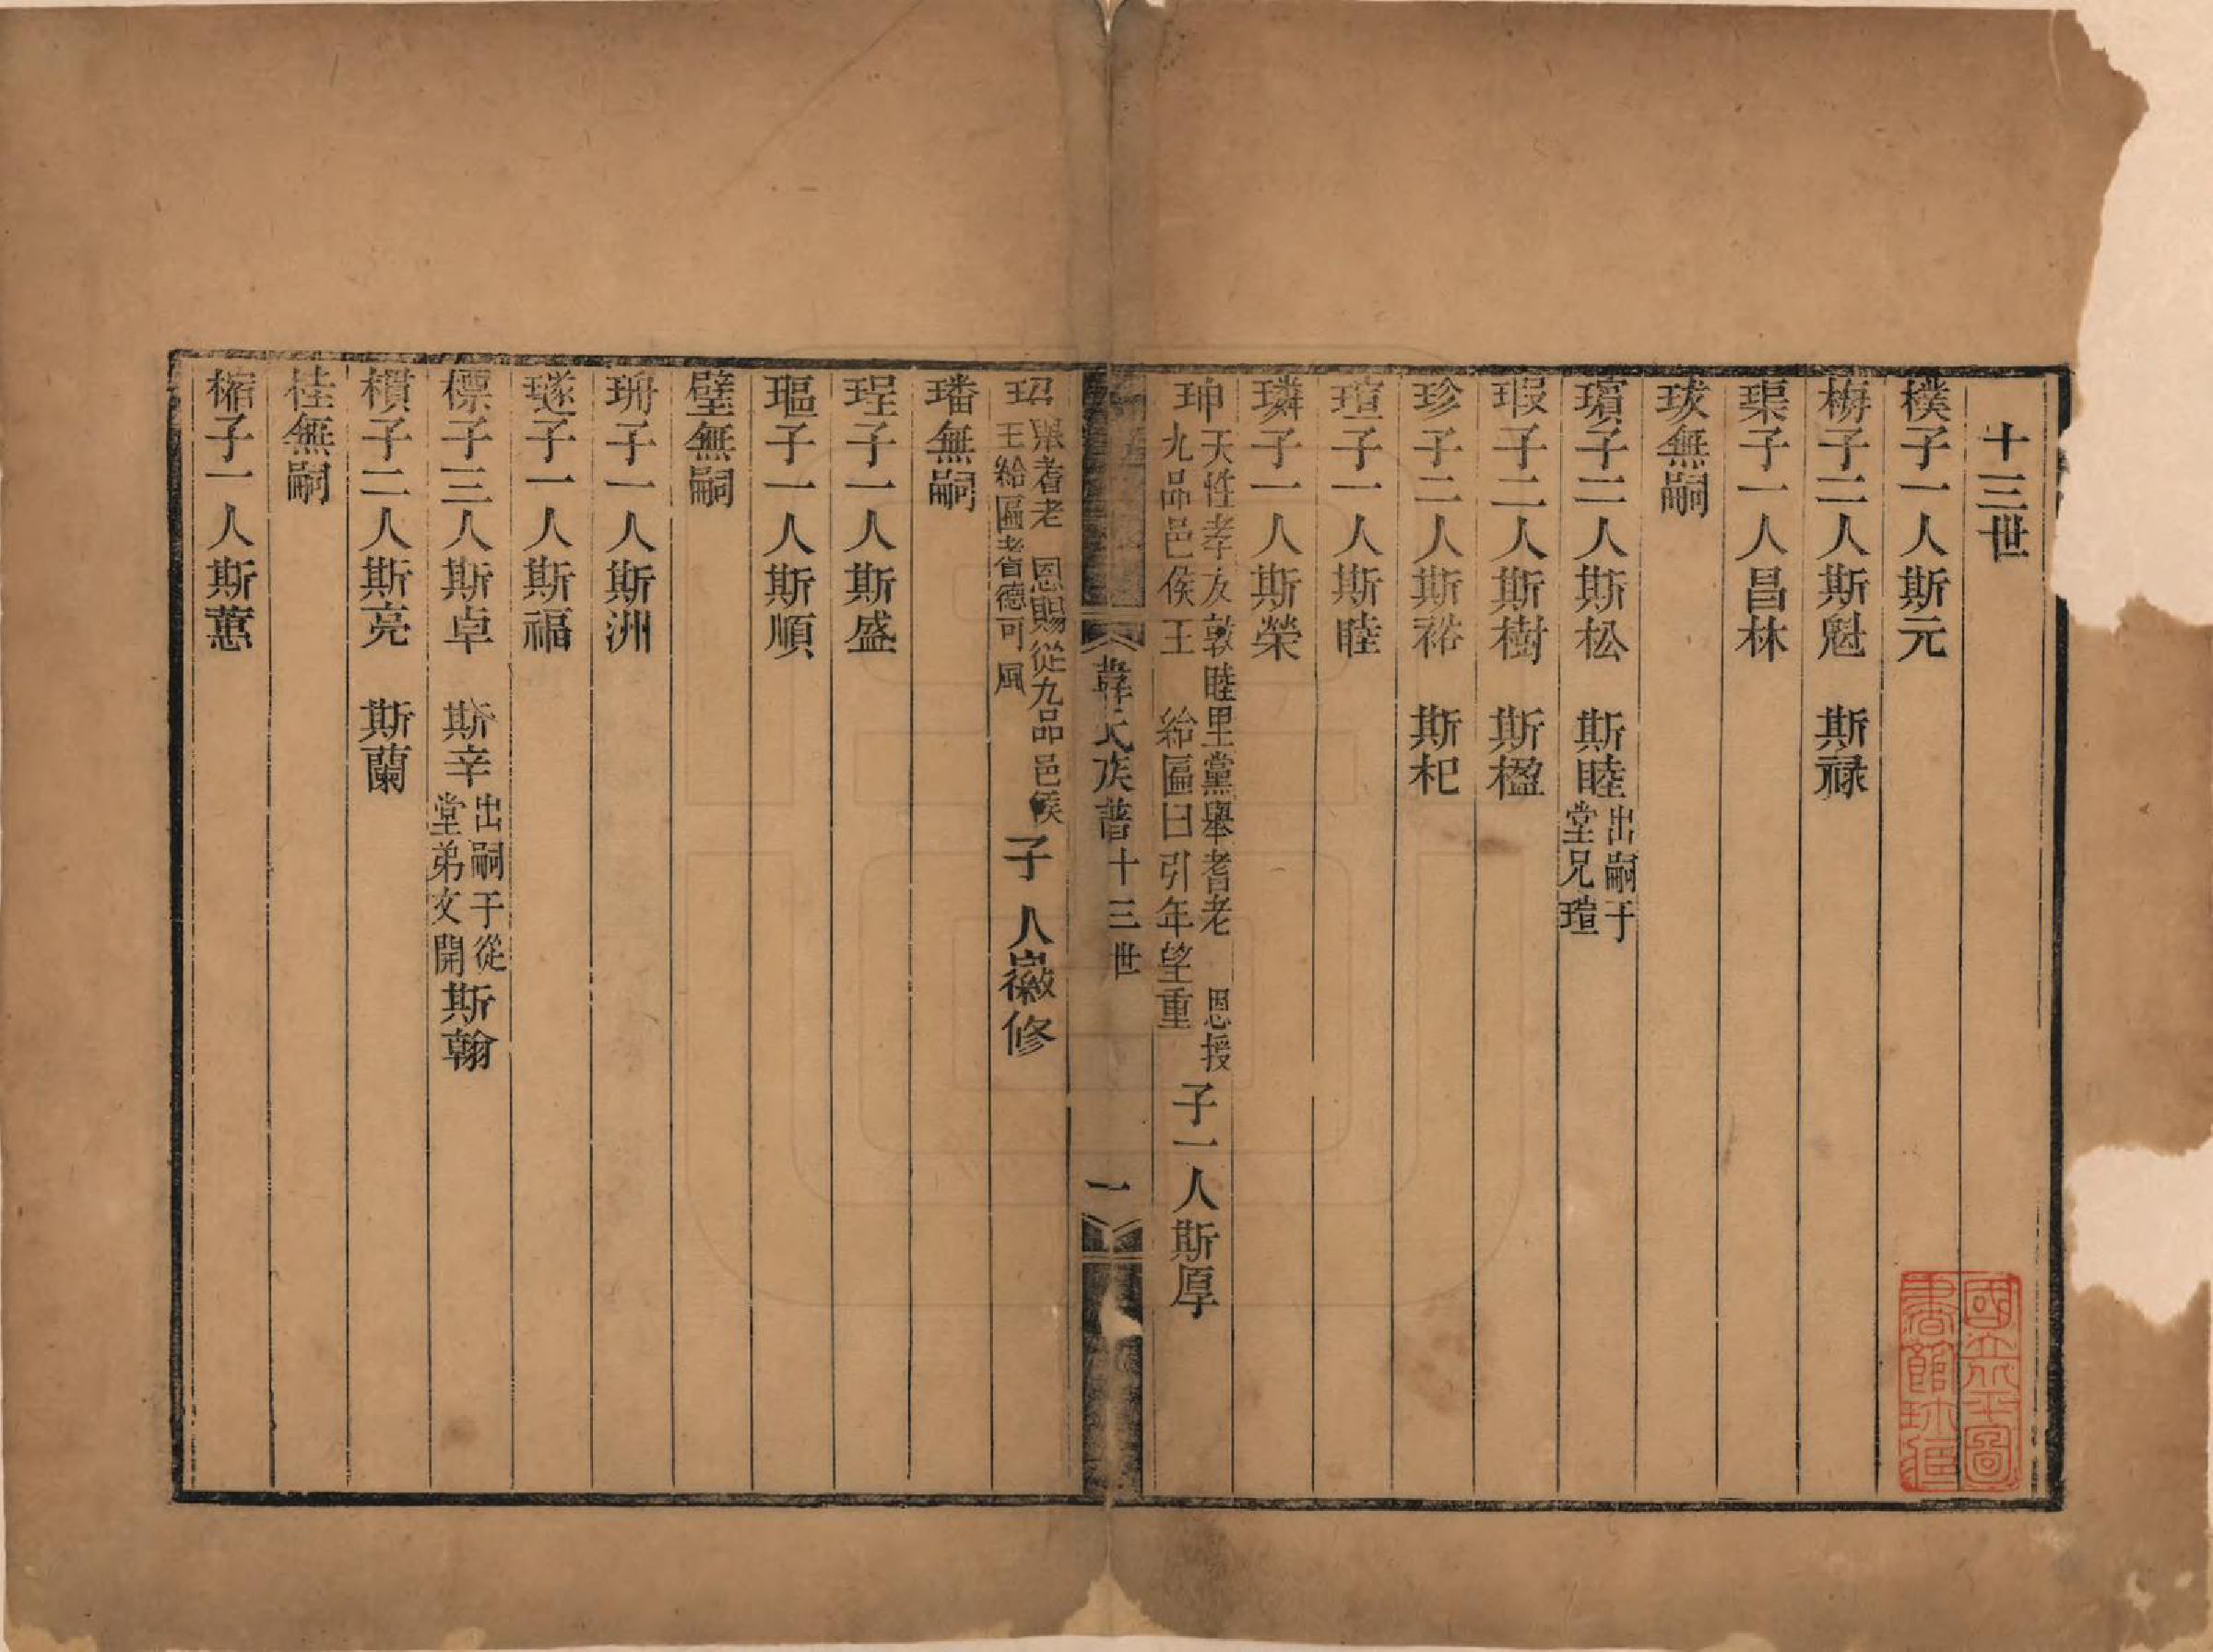 十三世
樸子一人斯元
梅子二人斯魁　斯禄
琹子一人昌林
球無嗣
璸子二人斯松　斯睦出嗣于堂兄瑄
瑕子二人斯樹　斯楹
珍子二人斯裕　斯杞
瑄子一人斯睦
璘子一人斯榮
珅天性孝友敦睦里黨舉耆老　恩授九品邑侯王　給匾曰引年望重子一人斯厚
韓氏族譜十三世　一
玿舉耆老　恩賜從九品邑侯王給匾耆德可風子　人徽修
璠無嗣
珵子一人斯盛
瓯子一人斯順
璧無嗣
珃子一人斯洲
璲子一人斯福
標子三人斯卓　斯辛出嗣于從堂弟文開斯翰
横子二人斯亮　斯蘭
桂無嗣
子一人斯蕙
國立北平圖書館珍藏